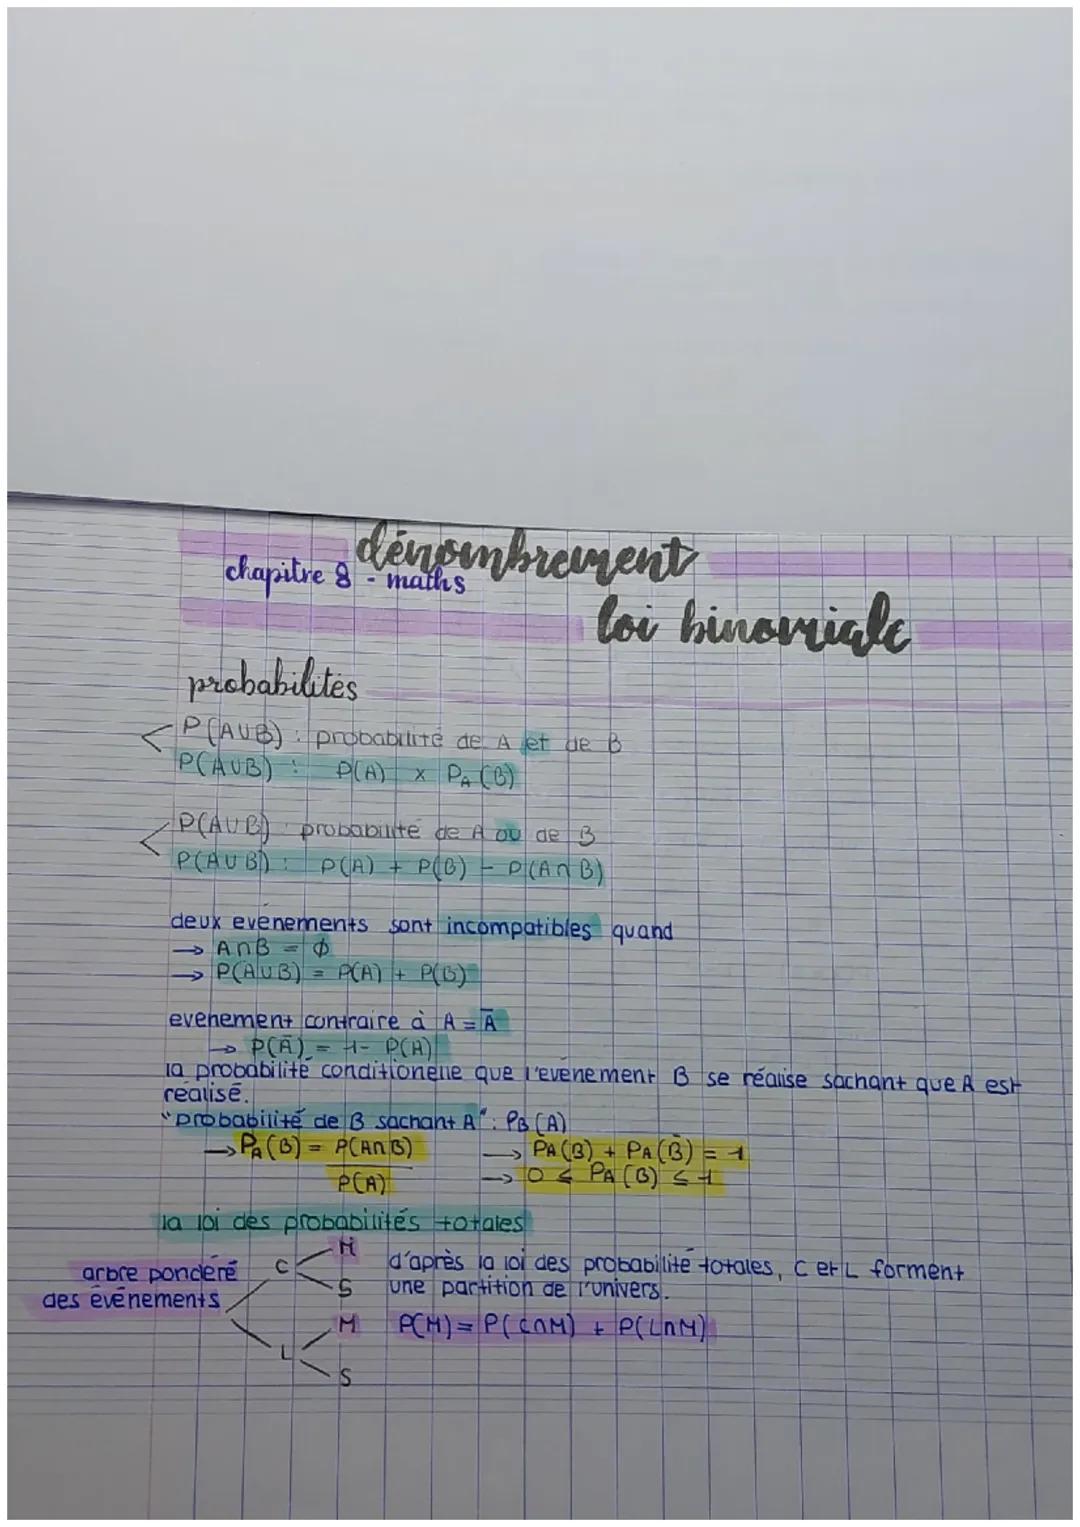 dénombrement
chapitre 8 - maths
loi binomiale
probabilités
P(A∪B) : probabilité de A et de B
P(A∪B) : P(A) x P_A(B)
P(A∪B) : probabilité de A ou de B
P(A∪B) : P(A) + P(B) - P(A∩B)
deux evénements sont incompatibles quand
→ A∩B = ∅
→ P(A∪B) = P(A) + P(B)
evenement contraire à A = Ā
→ P(Ā) = 1 - P(A)
la probabilité conditionelle que l'evénement B se réalise sachant que A est
réalisé.
"probabilité de B sachant A" : P_B(A)
→ P_A(B) = P(A∩B) / P(A)
→ P_A(B) + P_A(B̄) = 1
→ 0 ≤ P_A(B) ≤ 1
la loi des probabilités totales
arbre pondéré
des événements
C
M
S
L
M
S
d'après la loi des probabilité totales, C et L forment
une partition de l'univers.
P(M) = P(C∩M) + P(L∩M)